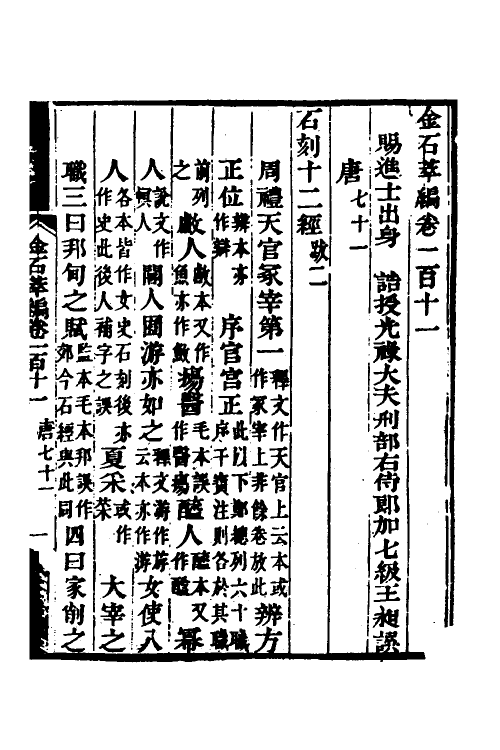 金石萃編卷一百十一
賜進士出身 誥授光祿大夫刑部右侍郎加七級王昶譔
唐七十一
石刻十二經跋二
周禮天官冢宰第一釋文作天官上云本或作冢宰上非餘卷放此辨方
正位辨本亦作辯 序官宮正此以下鄭總列六十職序干寶注則各於其職
前列之 䱷人䱷本又作魚亦作𩼪 瘍醫毛本誤作醫瘍 醢人醢本又作𨢜 冪
人說文作幎人 閽人囿游亦如之釋文游作斿云本亦作游 女使八
人各本皆作女史石刻後亦作史此後人補字之誤 夏采采或作菜 大宰之
職三曰邦甸之賦監本毛本邦誤作郊今石經與此同 四曰家削之
金石萃編卷一百十一 唐七十一 一